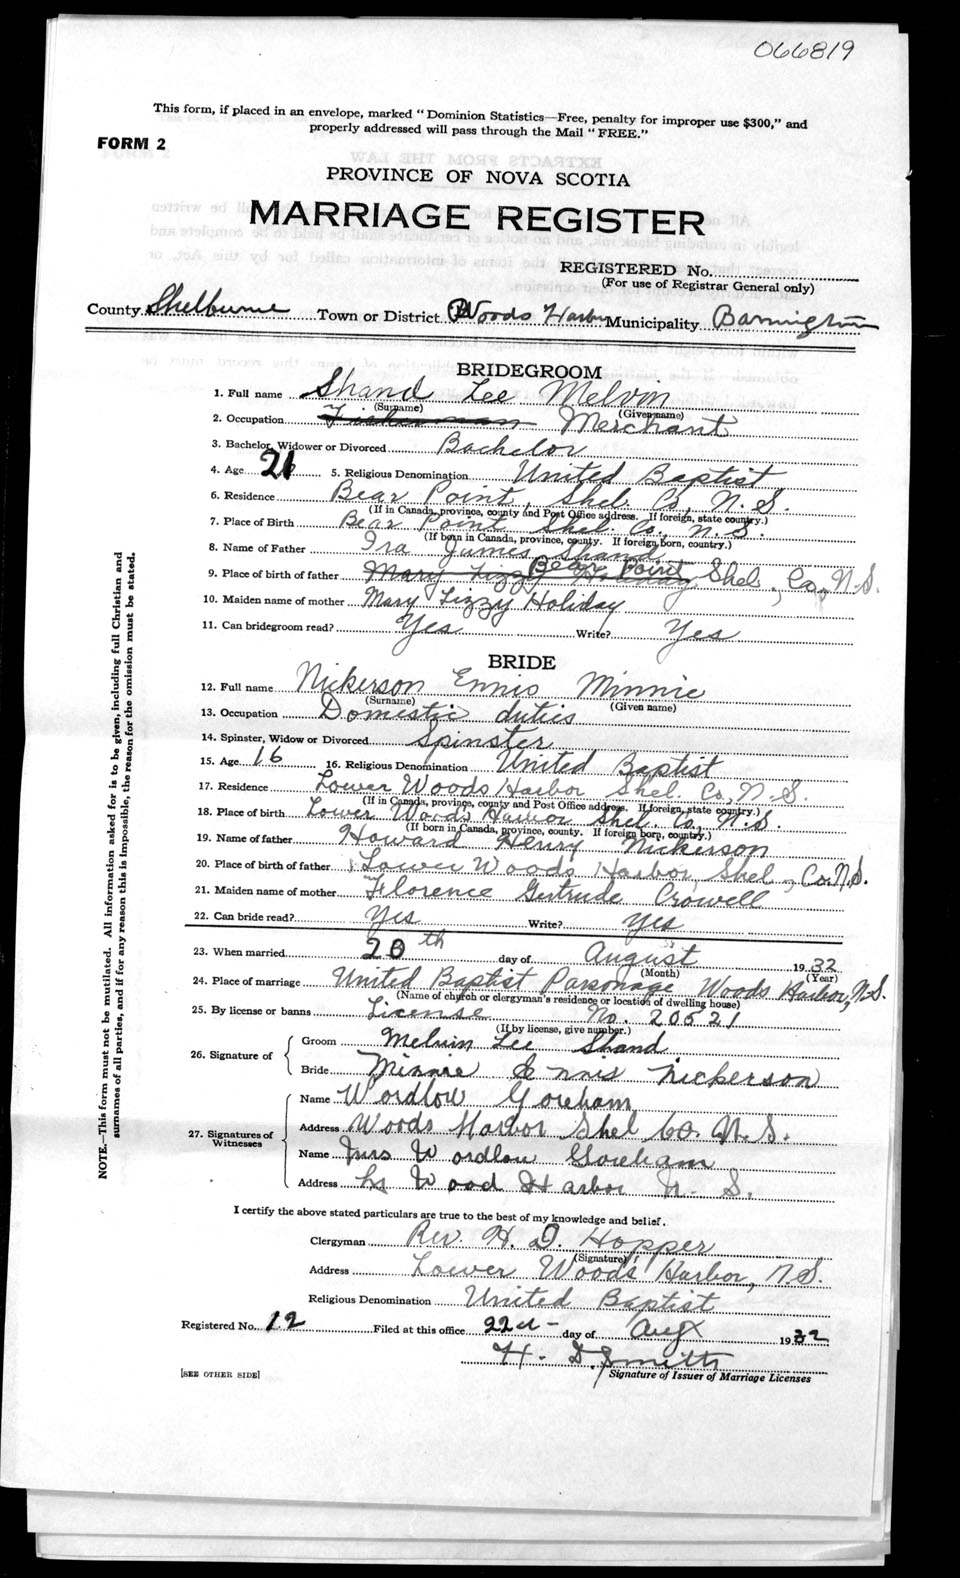 066819
This form, if placed in an envelope, marked "Dominion Statistics—Free, penalty for improper use $300," and
properly addressed will pass through the Mail "FREE."
FORM 2
PROVINCE OF NOVA SCOTIA
MARRIAGE REGISTER
REGISTERED No.
(For use of Registrar General only)
County Shelburne Town or District Woods Harbor Municipality Barrington
BRIDEGROOM
1. Full name Shand Lee Melvin
(Surname) (Given name)
2. Occupation Fisherman Merchant
3. Bachelor, Widower or Divorced Bachelor
4. Age 21 5. Religious Denomination United Baptist
6. Residence Bear Point, Shel. Co, N.S.
(If in Canada, province, county and Post Office address. If foreign, state country.)
7. Place of Birth Bear Point Shel. Co., N.S.
(If born in Canada, province, county. If foreign born, country.)
8. Name of Father Ira James Shand
9. Place of birth of father Mary Lizzy Holiday Bear Point Shel., Co., N.S.
10. Maiden name of mother Mary Lizzy Holiday
11. Can bridegroom read? Yes Write? Yes
BRIDE
12. Full name Nickerson Ennis Minnie
(Surname) (Given name)
13. Occupation Domestic duties
14. Spinster, Widow or Divorced Spinster
15. Age 16 16. Religious Denomination United Baptist
17. Residence Lower Woods Harbor Shel. Co., N.S.
(If in Canada, province, county and Post Office address. If foreign, state country.)
18. Place of birth Lower Woods Harbor Shel. Co., N.S.
(If born in Canada, province, county. If foreign born, country.)
19. Name of father Howard Henry Nickerson
20. Place of birth of father Lower Woods Harbor, Shel., Co. N.S.
21. Maiden name of mother Florence Gertrude Crowell
22. Can bride read? Yes Write? Yes
23. When married 20th day of August 1932
(Month) (Year)
24. Place of marriage United Baptist Parsonage Woods Harbor, N.S.
(Name of church or clergyman's residence or location of dwelling house)
25. By license or banns License No. 20521
(If by license, give number.)
26. Signature of Groom Melvin Lee Shand
Bride Minnie Ennis Nickerson
27. Signatures of Witnesses Name Wordlow Goreham
Address Woods Harbor Shel Co. N.S.
Name Mrs Wordlow Goreham
Address Wood Harbor N. S.
I certify the above stated particulars are true to the best of my knowledge and belief.
Clergyman Rev. H. D. Hopper
(Signature)
Address Lower Woods Harbor, N.S.
Religious Denomination United Baptist
Registered No. 12 Filed at this office 22d - day of Aug 1932
H. D. Smith
Signature of Issuer of Marriage Licenses
[SEE OTHER SIDE]
NOTE.—This form must not be mutilated. All information asked for is to be given, including full Christian and
surnames of all parties, and if for any reason this is impossible, the reason for the omission must be stated.